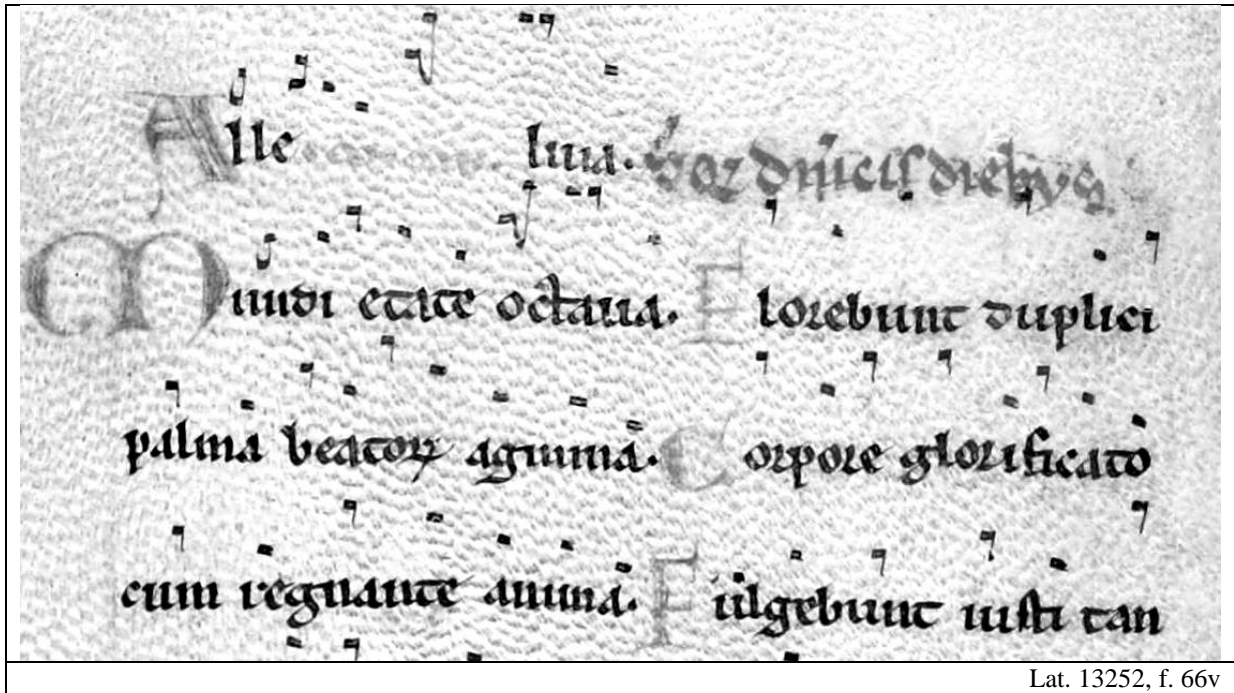 Alleluia. dñicis diebus
Mundi etate octaua. Florebunt duplici
palma beatoꝝ agmina. Corpore glorificato
cum regnante anima. Fulgebunt iusti tan
Lat. 13252, f. 66v